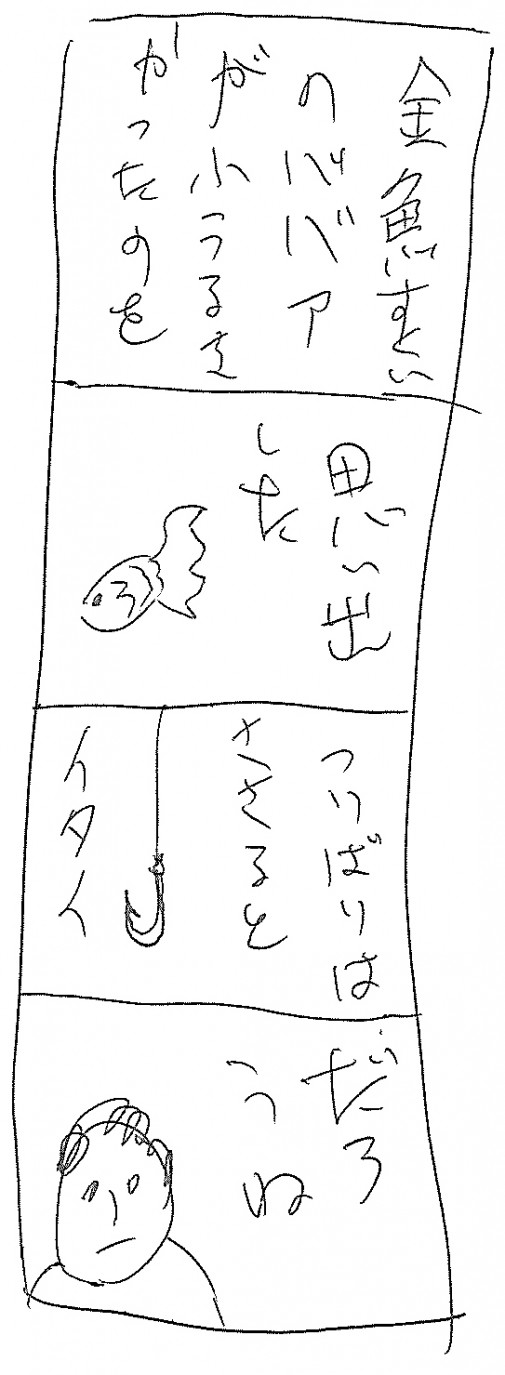 金魚すくい
のババア
が小うるさ
かったのを
思い出
した
つりばりは
ささると
イタイ
だろ
うね